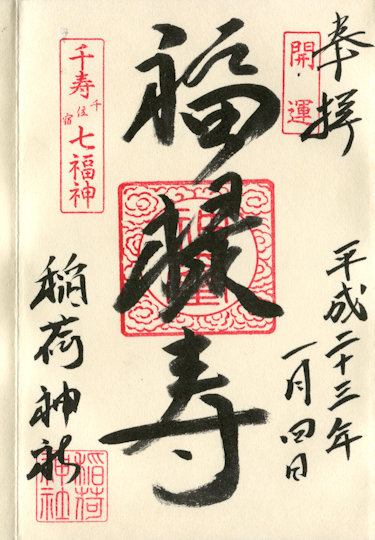 奉拝
開運
平成二十三年
一月四日
福禄寿
千寿
千住宿
七福神
稲荷神社
稲荷
神社